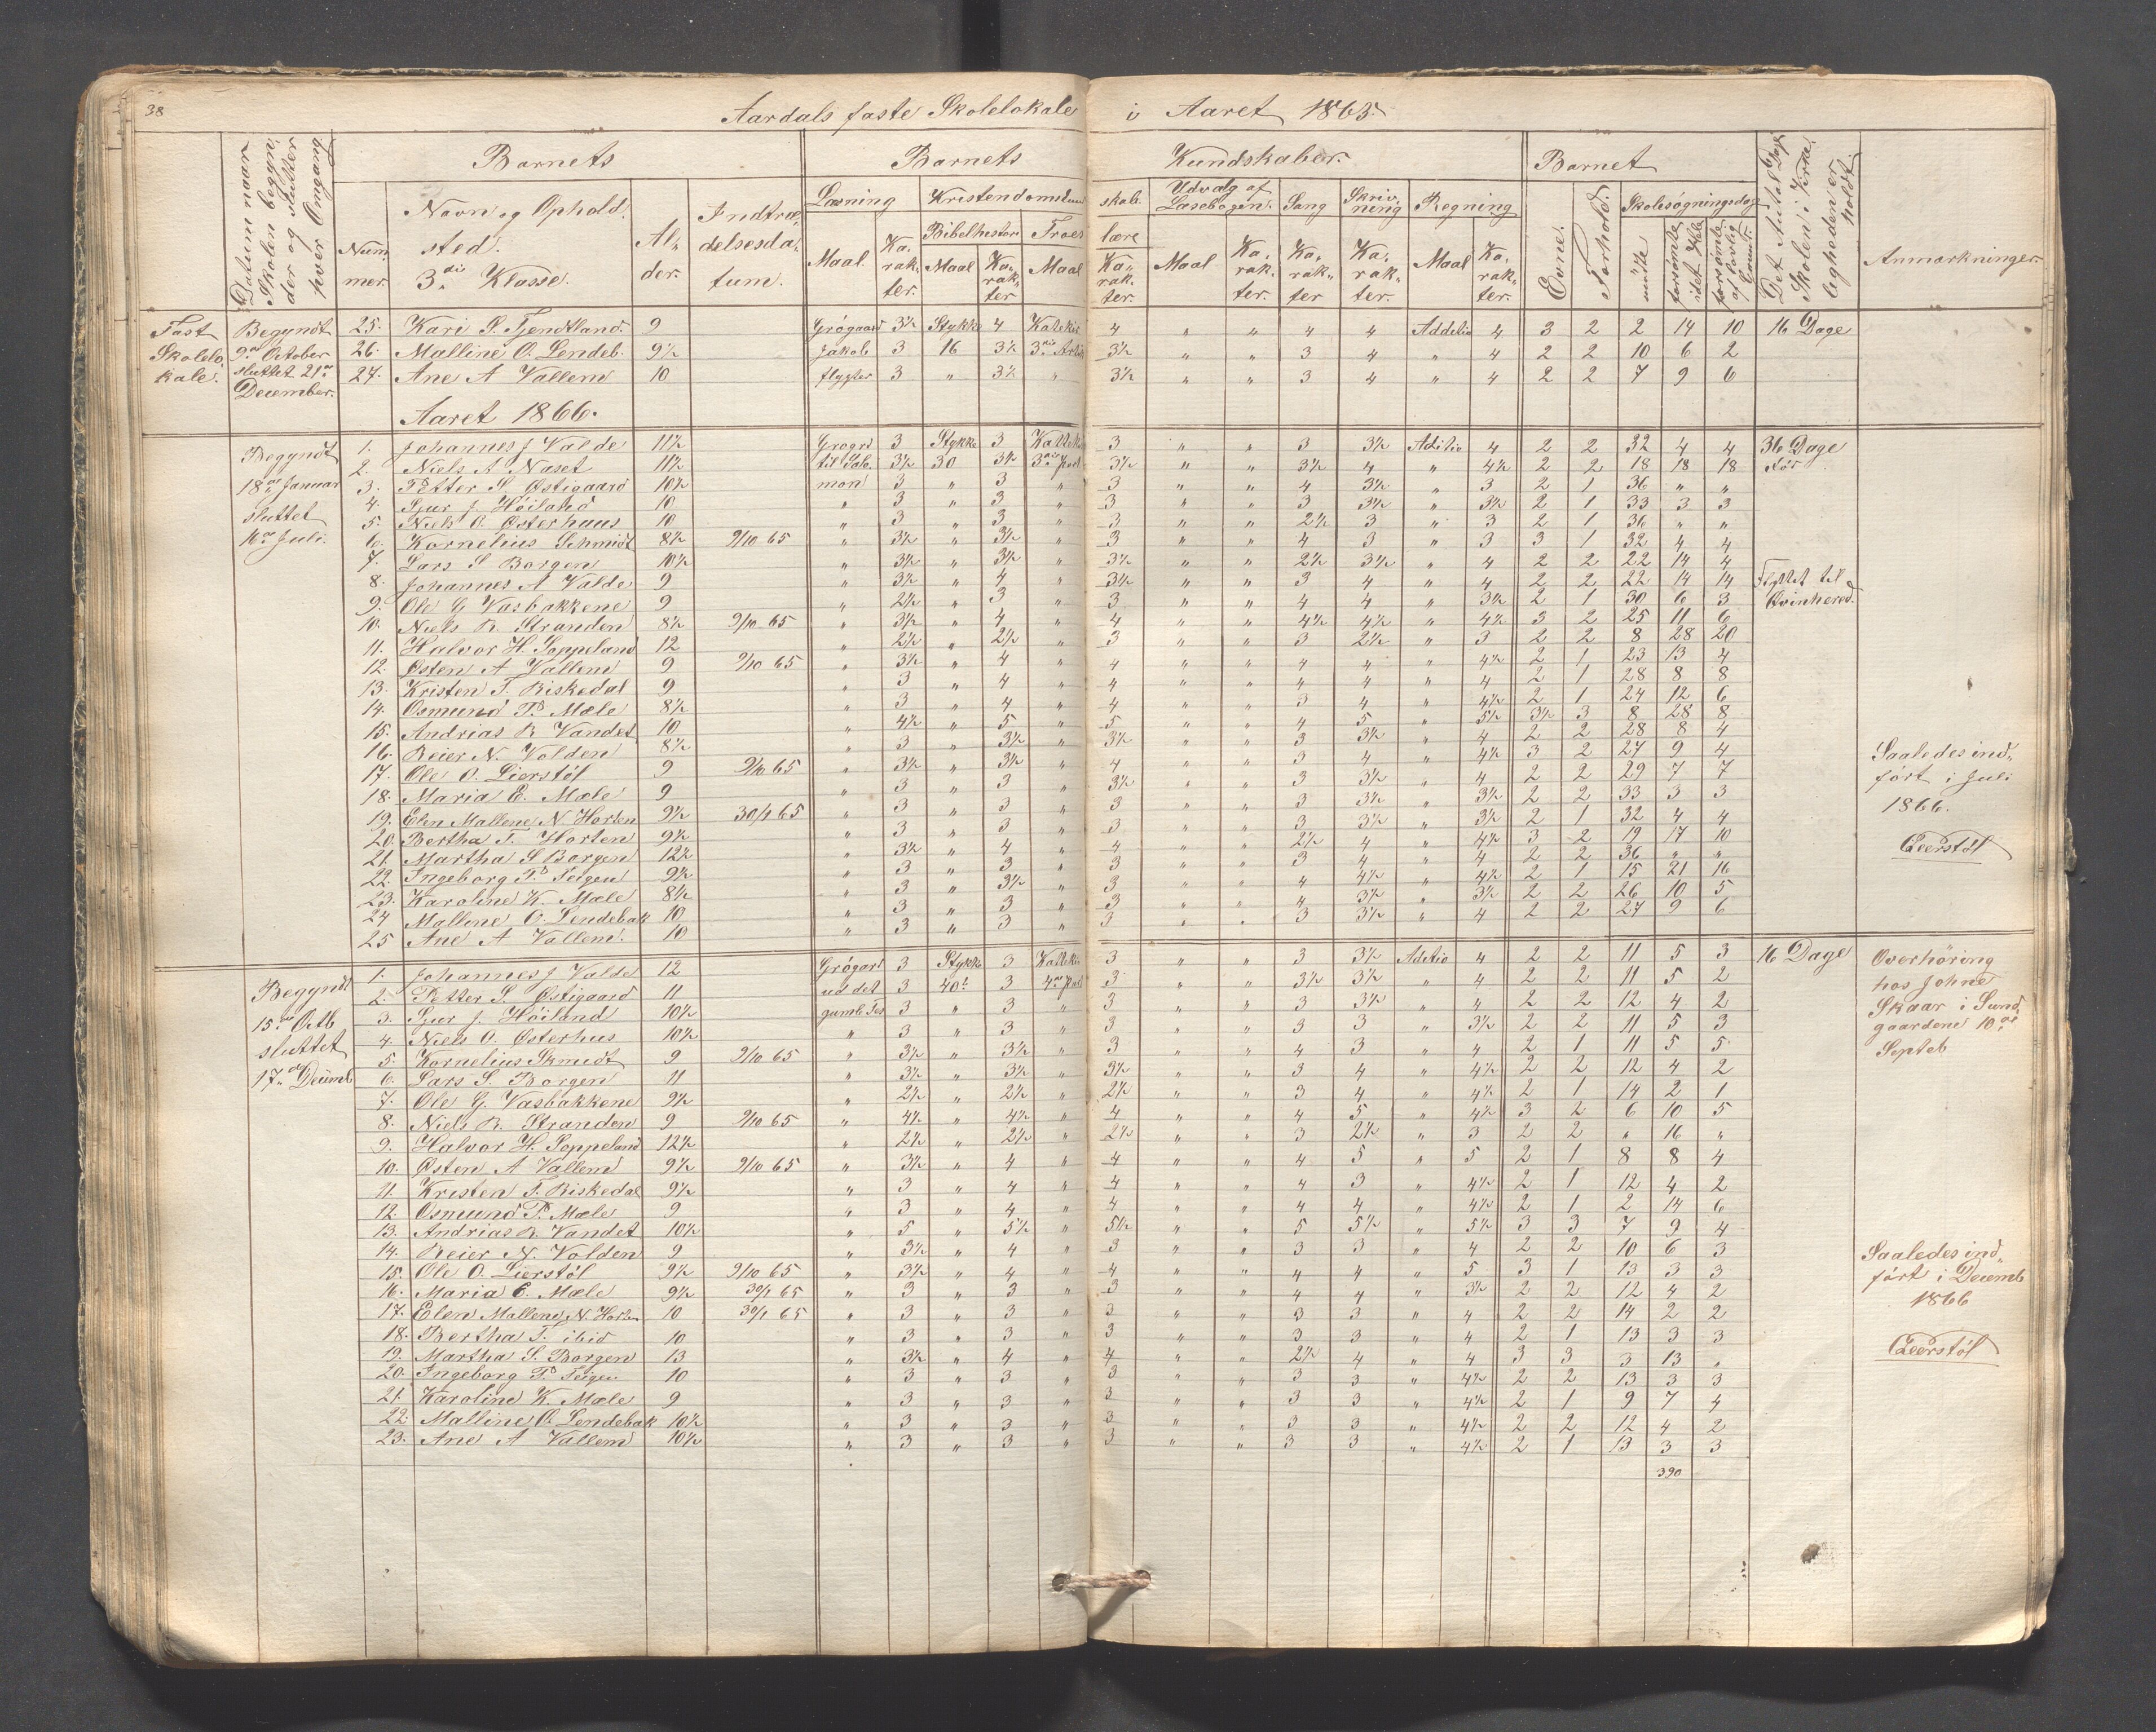 38
Aardals faste Skolelokale i Aaret 1865.
Datum naar Skolen begynder og slutter hver Omgang
Barnets
Barnets Kundskaber.
Barnet
Det Antal Dage Skolen i Virkeligheden er holdt
Anmærkninger
Nummer.
Navn og Opholdsted. 3die Klasse.
Alder.
Indtrædelsesdatum.
Læsning
Kristendomskundskab.
Udvalg af Læsebogen.
Sang
Skrivning
Regning
Evne.
Forhold.
Skolesøgningsdage
Maal.
Karakter.
Bibelhistor
Maal
Karakter
Troeslære
Maal
Karakter.
Maal
Karakter.
Karakter
Karakter.
Maal
Karakter.
mødte
forsømte idet Hele
forsømte af lovlig Grund.
Fast Skolelokale.
Begyndt 9de October sluttet 21de December.
25. Kari S. Tjendtland. 9 Grøgaard 3½ Stykke 4 Katekis 4 " " 4 4 Addetio 4 3 2 2 14 10 16 Dage
26. Malline O. Lendeb. 9½ Jakob 3 16 3½ 3die Artik 3½ " " 3 4 " 4 2 2 10 6 2
27. Ane A Vallem 10 flygter 3 " 3½ " 3½ " " 3 4 " 4 2 2 7 9 6
Aaret 1866.
Begyndt 18de Januar sluttet 16de Juli.
1. Johannes J Valde 11½ Grøgrd 3 Stykke 3 Kateki 3 " " 3 3½ Aditio 4 2 2 32 4 4 36 Dage
2. Niels A Naset 11½ til Salo 3½ 30 3½ 3die part 3½ " " 3½ 4 " 4½ 2 2 18 18 18
3. Petter S Østigaard 10½ mon 3 " 3 " 3 " " 4 3½ " 3 2 1 36 " "
4. Sjur J. Höiland 10 " 3 " 3 " 3 " " 3 3½ " 3½ 2 1 33 3 3
5. Niels O. Østerhuus 10 " 3 " 3 " 3 " " 2½ 3 " 3 2 1 36 " "
6. Kornelius Schmidt 8½ 9/10 65 " 3½ " 3½ " 3 " " 4 3 " 3 3 1 32 4 4
7. Lars S Borgen 10½ " 3½ " 3½ " 3½ " " 2½ 3½ " 4 2 2 22 14 4
8. Johannes A Valde 9 " 3½ " 4 " 3½ " " 3 4 " 4 2 2 22 14 14 Flyttet til
9. Ole G Vasbakkene 9 " 2½ " 3 " 3 " " 4 4 " 3½ 2 1 30 6 3 Qvinhered.
10. Niels R. Stranden 8½ 9/10 65 " 3½ " 4 " 4 " " 4½ 4½ " 4½ 3 2 25 11 6
11. Halvor H. Soppeland 12 " 2½ " 2½ " 3 " " 3 2½ " 3 2 2 8 28 20
12. Østen A Vallem 9 9/10 65 " 3½ " 4 " 4 " " 4 " " 4½ 2 1 23 13 4
13. Kristen T. Riskedal 9 " 3 " 4 " 4 " " 4 4 " 4 2 1 28 8 8
14. Osmund Pd. Mæle 8½ " 3 " 4 " 4 " " 3 4 " 4½ 2 1 24 12 6
15. Andrias R Vandet 10 " 4½ " 5 " 5 " " 4 5 " 5½ 3½ 3 8 28 8
16. Reier N. Volden 8½ " 3 " 3½ " 3½ " " 3 3½ " 4 2 2 28 8 4
17. Ole O. Lierstöl 9 9/10 65 " 3½ " 3½ " 4 " " 3 4 " 4½ 3 2 27 9 4
18. Maria E. Mæle 9 " 3 " 3 " 3½ " " 3 3½ " 4 2 2 29 7 7
19. Elen Mallene N. Horten 9½ 30/1 65 " 3 " 3 " 3 " " 3 3½ " 3½ 2 2 33 3 3
20. Bertha T. Horten 9½ " 3 " 3 " 3 " " 3 3½ " 3½ 2 1 32 4 4
21. Martha S Borgen 12½ " 3½ " 4 " 4 " " 2½ 4 " 4½ 3 2 19 17 10
22. Ingeborg Pd. Teigen 9½ " 3 " 3 " 3 " " 3 4 " 4 2 2 36 " "
23. Karoline K. Mæle 8½ " 3 " 3½ " 3 " " 4 4½ " 4½ 2 1 15 21 16
24 Malline O. Lendebak 10 " 3 " 3 " 3 " " 4 3½ " 3½ 2 2 26 10 5
25 Ane A Vallem. 10 " 3 " 3 " 3 " " 3 3½ " 4 2 2 27 9 6
Saaledes ind-
ført i Juli
1866.
Lierstöl
Begyndt 15de Octb sluttet 17de Decemb
1. Johannes J Valde 12 Grøgard 3 Stykke 3 Katekis 3 " " 3 3½ Adetio 4 2 2 11 5 3 16 Dage
2. Petter S. Østigaard 11 ud det 3 40de 3 4de Part 3 " " 3½ 3½ " 4 2 2 11 5 2
3. Sjur J. Höiland 10½ gamle Tes 3 " 3 " 3 " " 3 3½ " " 2 2 12 4 2
4. Niels O. Østerhus 10½ " 3 " 3 " 3 " " 3 3 " 3½ 2 2 11 5 3
5. Kornelius Skmidt 9 9/10 65 " 3½ " 3½ " 3 " " 4 3 " 4 2 1 11 5 5
6. Lars S. Borgen 11 " 3½ " 3½ " 3½ " " 3 4 " 4½ 2 2 12 4 2
7. Ole G. Vasbakkene 9½ " 2½ " 2½ " 2½ " " 3 4 " 4½ 2 1 14 2 1
8. Niels R. Stranden 9 9/10 65 " 4½ " 4½ " 4 " " 4 5 " 4½ 3 2 6 10 5
9. Halvor H. Soppeland 12½ " 2½ " 2½ " 2½ " " 3 2½ " 3 2 2 " 16 "
10. Østen A Vallem 9½ 9/10 65 " 3½ " 4 " 4 " " 4 5 " 5 2 1 8 8 4
11. Kristen T. Riskedal 9½ " 3 " 4 " 4 " " 4 3 " 4½ 2 1 12 4 2
12. Osmund Pd. Mæle 9 " 3 " 4 " 4 " " 4 4 " 4½ 2 1 2 14 6
13. Andrias R Vandet 10½ " 5 " 5½ " 5½ " " 5 5½ " 5½ 3 3 7 9 4
14. Reier N. Volden 9 " 3½ " 4 " 3 " " 3 3 " 4 2 2 10 6 3
15. Ole O. Lierstöl 9½ 9/10 65 " 3½ " 4 " 4 " " 4 4 " 5 3 1 13 3 3
16. Maria E. Mæle 9½ 30/1 65 " 3 " 3 " 3 " " 4 4 " 3½ 2 2 12 4 2
17. Elen Mallene N. Horten 10 30/1 65 " 3 " 3 " 3 " " 3 3 " 4 2 2 14 2 2
18. Bertha T. ibid 10 " 3 " 3 " 3 " " 3 3 " 4 2 1 13 3 3
19. Martha S. Borgen 13 " 3½ " 4 " 4 " " 2½ 4 " 4 3 3 3 13 "
20. Ingeborg Pd. Teigen 10 " 3 " 3 " 3 " " 3 3 " 4½ 2 2 13 3 3
21. Karoline K. Mæle 9 " 3 " 3 " 3 " " 3 3 " 4½ 2 1 9 7 4
22. Malline O. Lendebak 10½ " 3 " 3 " 3 " " 3 3 " 4½ 2 2 12 4 2
23. Ane A Vallem 10½ " 3 " 3 " 3 " " 3 3 " 4½ 2 1 13 3 3
390
Overhöring
hos Johne
Skaar i Sund-
gaardene 10de
Septeb
Saaledes ind-
ført i Decemb
1866
Lierstöl